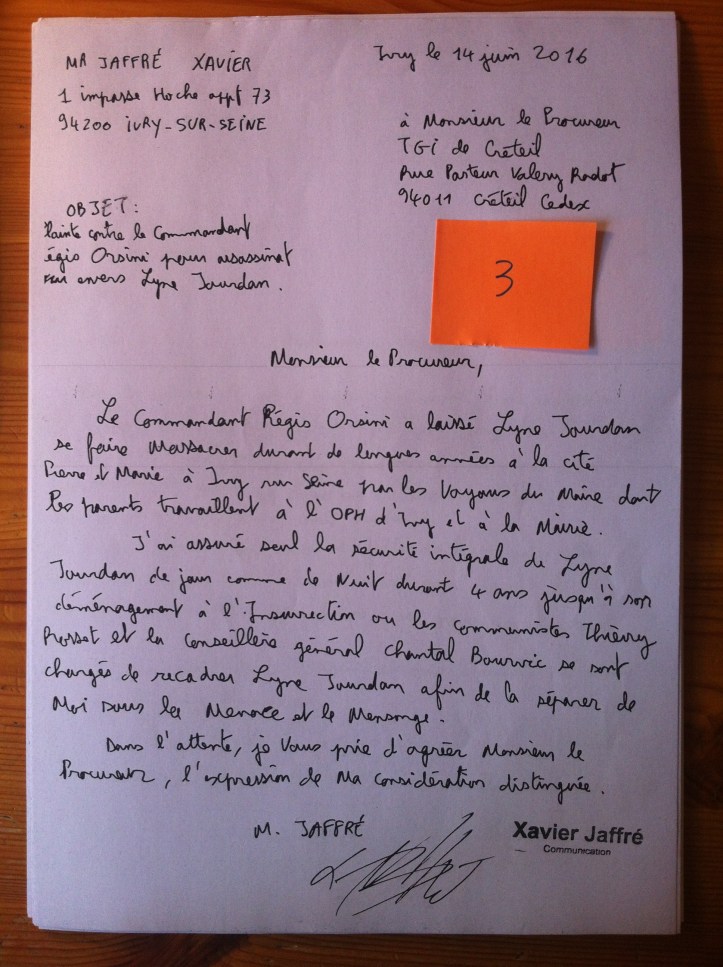 MR JAFFRÉ XAVIER
1 impasse Hoche appt 73
94200 IVRY-SUR-SEINE
Ivry le 14 juin 2016
à Monsieur le Procureur
TGI de Créteil
Rue Pasteur Valery Radot
94011 Créteil Cedex
OBJET:
lainte contre le Commandant
égis Orsini pour assassinat
envers Lyne Jourdan.
3
Monsieur le Procureur,
Le Commandant Régis Orsini a laissé Lyne Jourdan
se faire Massacrer durant de longues années à la cité
Pierre et Marie à Ivry sur Seine par les Voyous du Maire dont
les parents travaillent à l'OPH d'Ivry et à la Mairie.
J'ai assuré seul la sécurité intégrale de Lyne
Jourdan de jour comme de Nuit durant 4 ans jusqu'à son
déménagement à l'Insurrection ou les communistes Thierry
et la Conseillère général Chantal Bourvic se sont
chargés de recadrer Lyne Jourdan afin de la séparer de
Moi sous la Menace et le Mensonge.
Dans l'attente, je Vous prie d'agréer Monsieur le
Procureur, l'expression de Ma considération distinguée.
M. JAFFRÉ
Xavier Jaffré
Communication